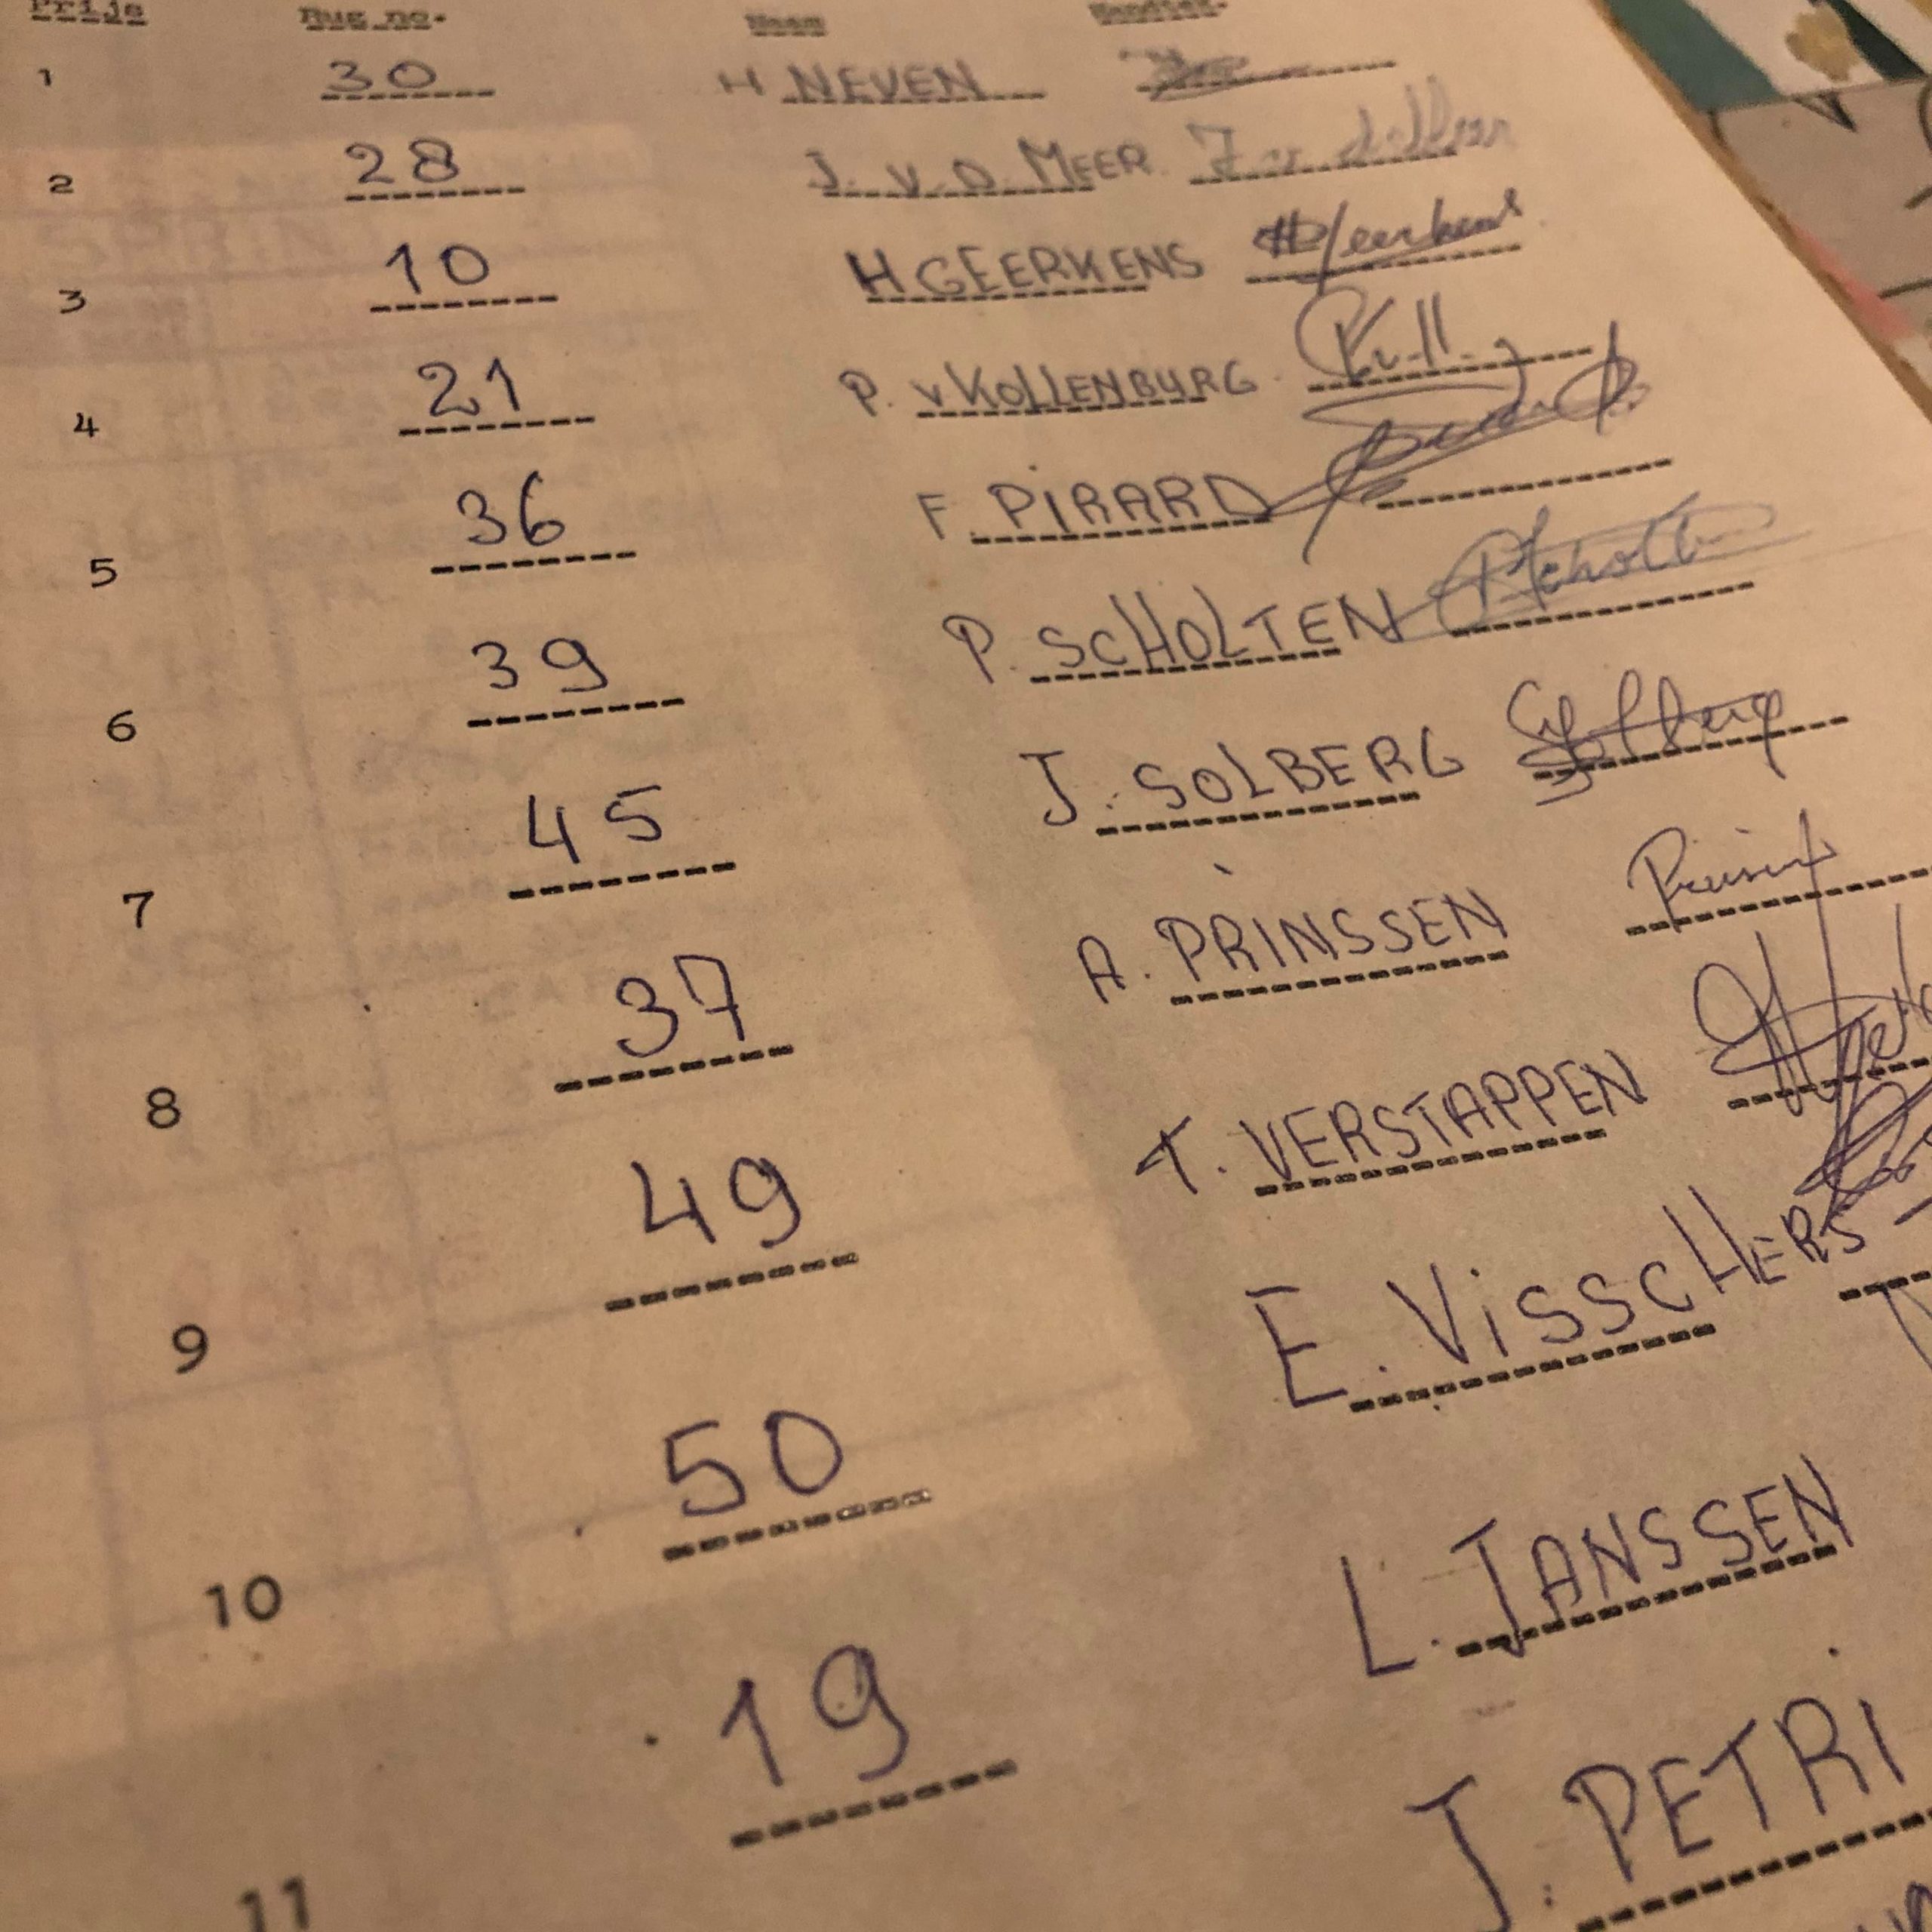 Prijs Rug no. Naam Handtek.
1 30 H NEVEN
2 28 J. v. D. MEER.
3 10 H GEERKENS HGeerkens
4 21 P. v KOLLENBURG.
5 36 F. PiRARD
6 39 P. SCHOLTEN
7 45 J. SOLBERG
8 37 A. PRINSSEN
9 49 T. VERSTAPPEN
10 50 E. VissCHERS
11 19 L. JANSSEN
J. PETRi